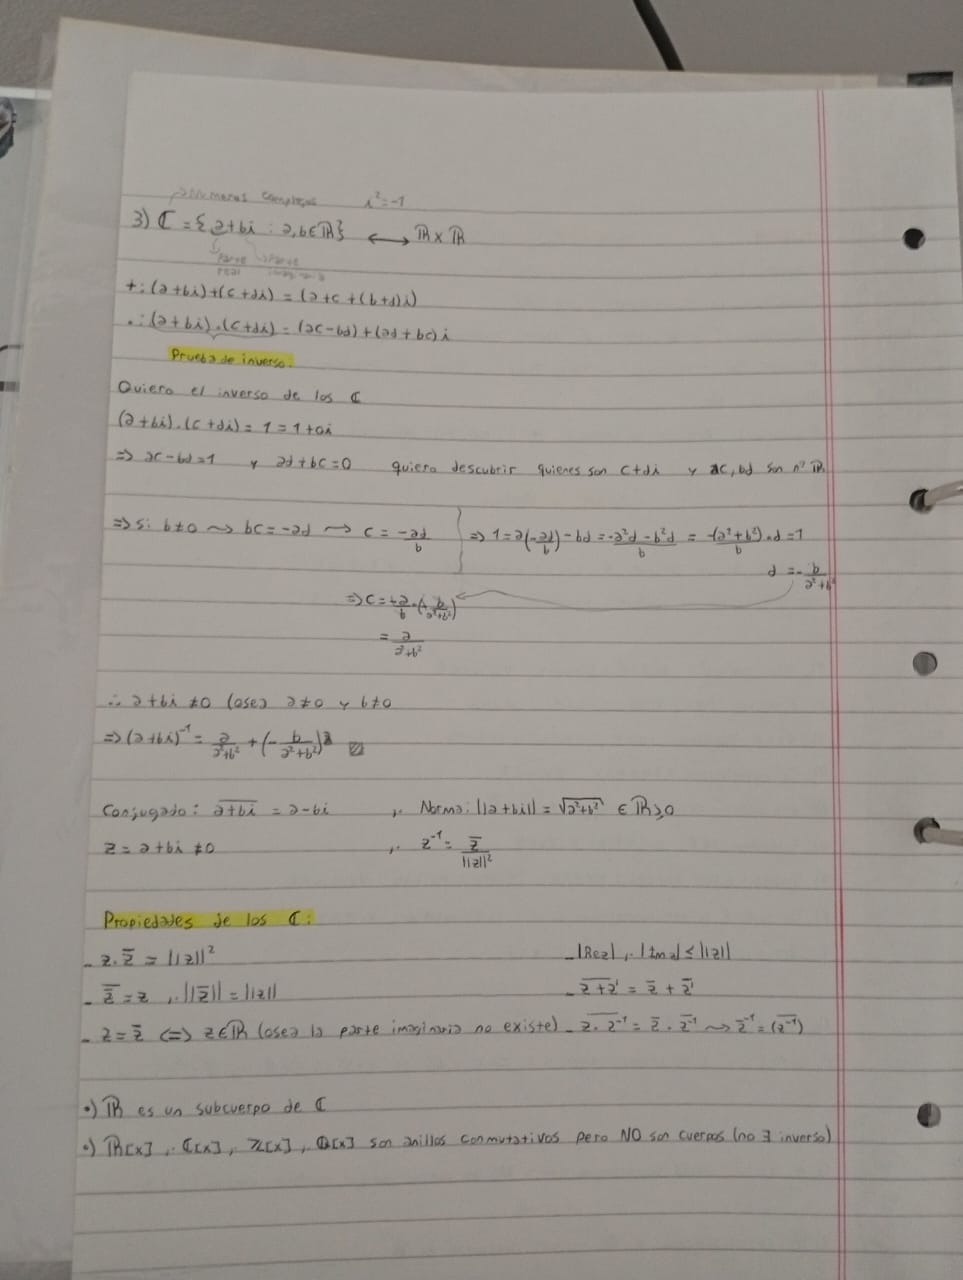 números complejos i²=-1
3) ℂ = {a+bi : a,b∈ℝ} ⟷ ℝ x ℝ
parte real parte imaginaria
+: (a+bi)+(c+di) = (a+c+(b+d)i)
·: (a+bi).(c+di) = (ac-bd)+(ad+bc)i
Prueba de inverso.
Quiero el inverso de los ℂ
(a+bi).(c+di) = 1 = 1+0i
=> ac-bd=1 y ad+bc=0 quiero descubrir quienes son c+di y ac, bd son nº ℝ.
=> si b≠0 ⇝ bc=-ad ⇝ c = -ad/b => 1=a(-ad/b)-bd = (-a²d-b²d)/b = -(a²+b²)/b . d = 1
d = -b/(a²+b²)
=> c = -a/b . (-b/(a²+b²))
= a/(a²+b²)
∴ a+bi ≠0 (osea a≠0 y b≠0
=> (a+bi)⁻¹ = a/(a²+b²) + (-b/(a²+b²))
Conjugado: \overline{a+bi} = a-bi ,. Norma: ||a+bi|| = √(a²+b²) ∈ ℝ≥0
z = a+bi ≠0 ,. z⁻¹ = \overline{z}/||z||²
Propiedades de los ℂ:
- z.\overline{z} = ||z||² - |Re z| ,. |Im z| ≤ ||z||
- \overline{\overline{z}} = z ,. ||\overline{z}|| = ||z|| - \overline{z+z'} = \overline{z} + \overline{z'}
- z = \overline{z} <=> z∈ℝ (osea la parte imaginaria no existe) - \overline{z.z⁻¹} = \overline{z}.\overline{z}⁻¹ ⇝ \overline{z}⁻¹ = (\overline{z⁻¹})
•) ℝ es un subcuerpo de ℂ
•) ℝ[x] ,. ℂ[x] , ℤ[x] , ℚ[x] son anillos conmutativos pero NO son cuerpos (no ∃ inverso)